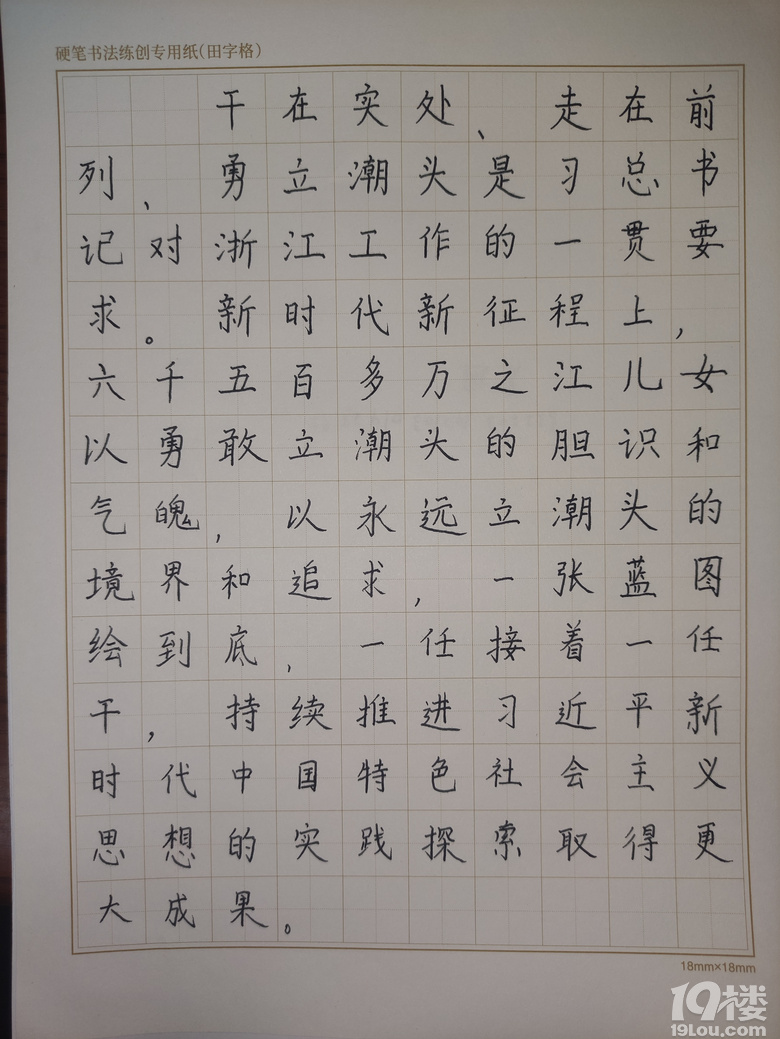 硬笔书法练创专用纸(田字格)
干在实处、走在前
列、勇立潮头是习总书
记对浙江工作的一贯要
求。新时代新征程上,
六千五百多万之江儿女
以勇敢立潮头的胆识和
气魄,以永远立潮头的
境界和追求,一张蓝图
绘到底,一任接着一任
干,持续推进习近平新
时代中国特色社会主义
思想的实践探索取得更
大成果。
18mm×18mm
19楼
19Lou.com